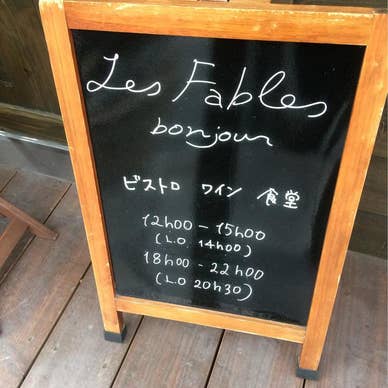 Les Fables
bonjour
ビストロ ワイン 食堂
12h00 - 15h00
(L.O 14h00)
18h00 - 22h00
(L.O 20h30)